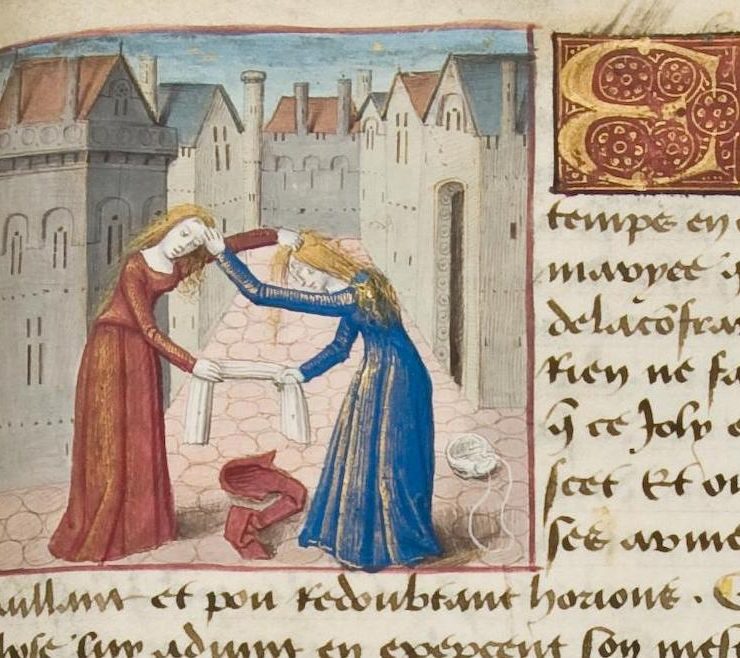 E
temps en
mavyee
dela cõfra
Rien ne fa
q̃ ce Joly
scet Et ou
ses arme
aillant et pou Redoubtant horions .
luy advint en exercent son mest